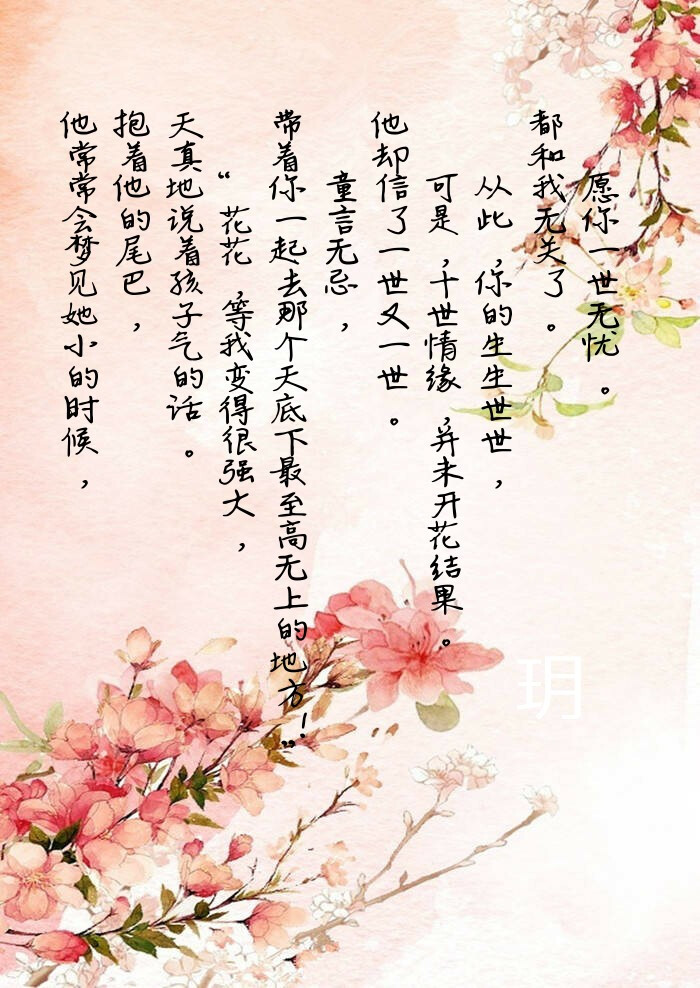 他常常会梦见她小的时候，
抱着他的尾巴，
天真地说着孩子气的话。
“花花，等我变得很强大，
带着你一起去那个天底下最至高无上的地方！”
童言无忌，
他却信了一世又一世。
可是，十世情缘，并未开花结果。
从此，你的生生世世，
都和我无关了。
愿你一世无忧。
玥